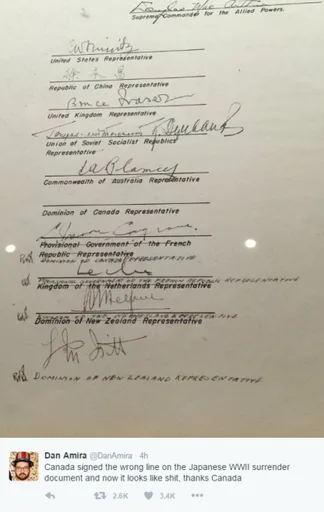 Supreme Commander for the Allied Powers.
United States Representative
Republic of China Representative
Bruce Fraser
United Kingdom Representative
Union of Soviet Socialist Republics
Representative
Commonwealth of Australia Representative
Dominion of Canada Representative
Provisional Government of the French
Republic Representative
DOMINION OF CANADA REPRESENTATIVE
PROVISIONAL GOVERNMENT OF THE FRENCH REPUBLIC REPRESENTATIVE
Kingdom of the Netherlands Representative
KINGDOM OF THE NETHERLANDS REPRESENTATIVE
Dominion of New Zealand Representative
DOMINION OF NEW ZEALAND REPRESENTATIVE
Dan Amira @DanAmira · 4h
Canada signed the wrong line on the Japanese WWII surrender
document and now it looks like shit, thanks Canada
2.6K 3.4K